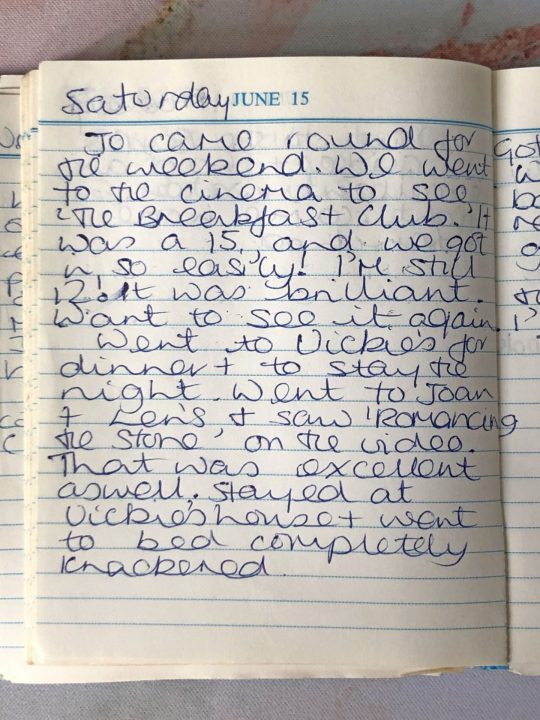 Saturday JUNE 15
Jo came round for
the weekend. We went
to the cinema to see
'The Breakfast Club.' It
was a 15, and we got
in, so easily! I'm still
12! It was brilliant.
Want to see it again.
Went to Vickie's for
dinner + to stay the
night. Went to Joan
+ Len's + saw 'Romancing
the Stone' on the video.
That was excellent
aswell. Stayed at
Vickie's house + went
to bed completely
knackered.
Got